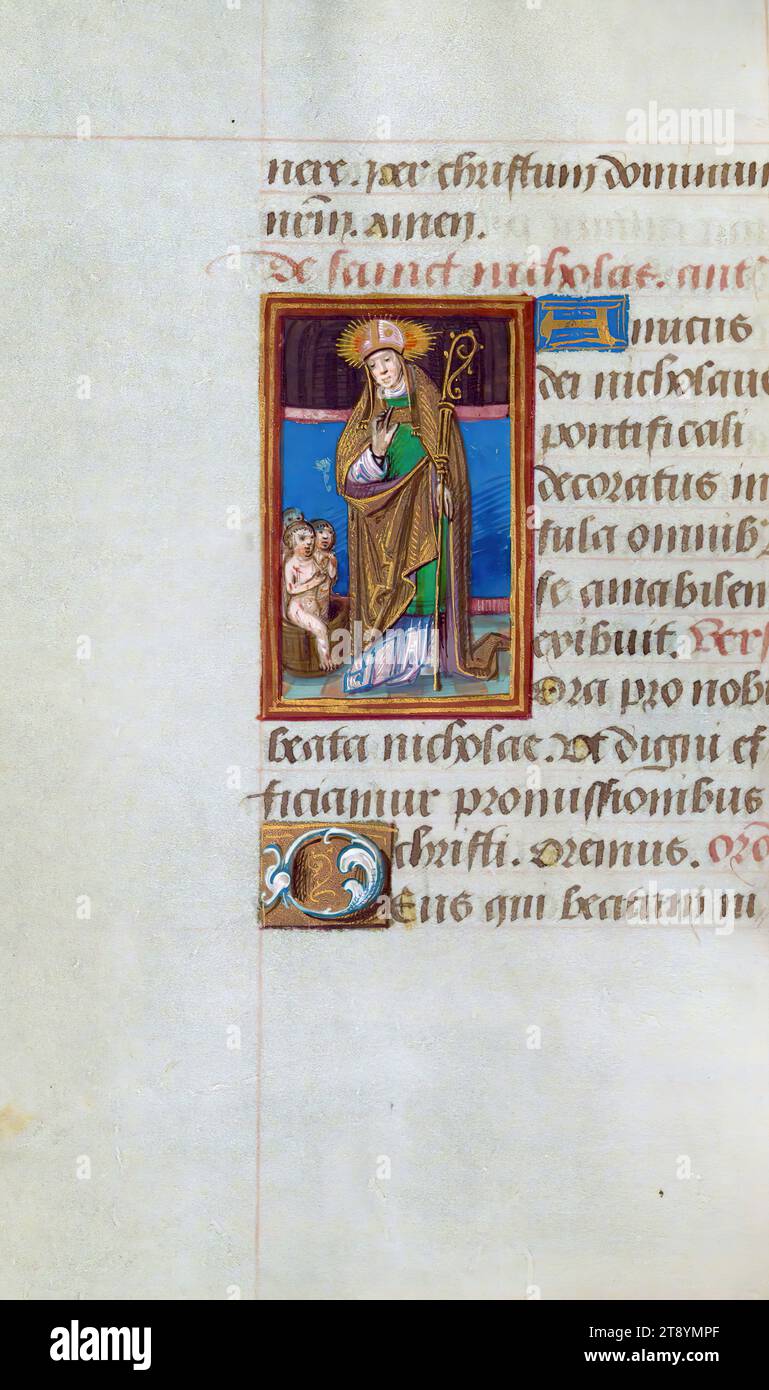 nere. per christum dominum
nrm̄. amen.
de sainct nicholas. ant
Amicus
dei nicholaus
pontificali
decoratus in
fula omnibꝰ
se amabilem
exibuit. Vers
Ora pro nobi
beata nicholae. Vt digni ef
ficiamur promissionibus
christi. Oremus. oro
Deus qui beatum ni
alamy
alamy
Image ID: 2T8YMPF
www.alamy.com